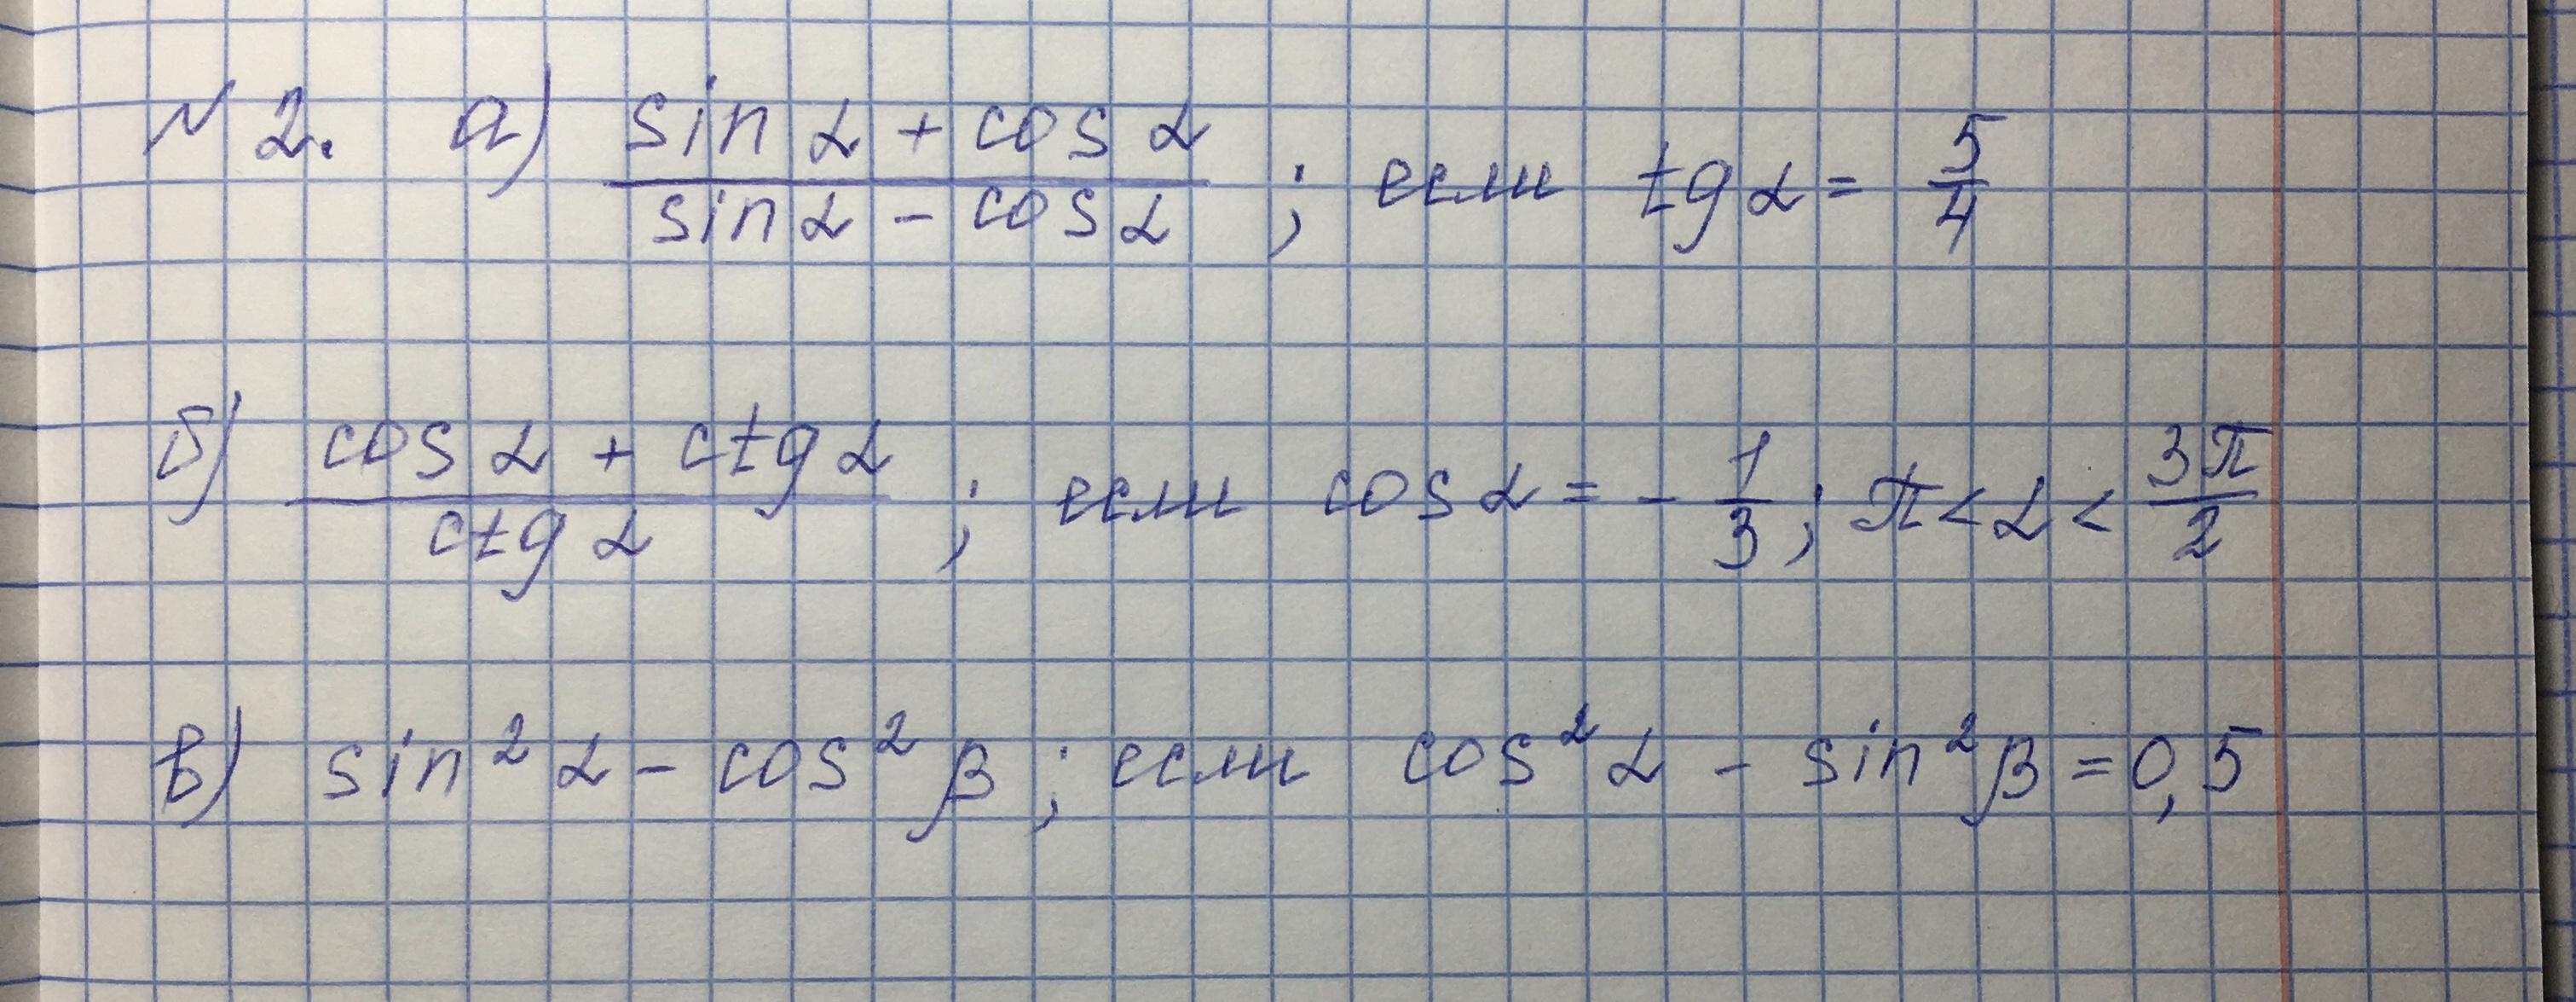 № 2. а) (sin α + cos α)/(sin α - cos α) ; если tg α = 5/4
б) (cos α + ctg α)/(ctg α) ; если cos α = - 1/3 ; π < α < 3π/2
в) sin² α - cos² β ; если cos² α - sin² β = 0,5